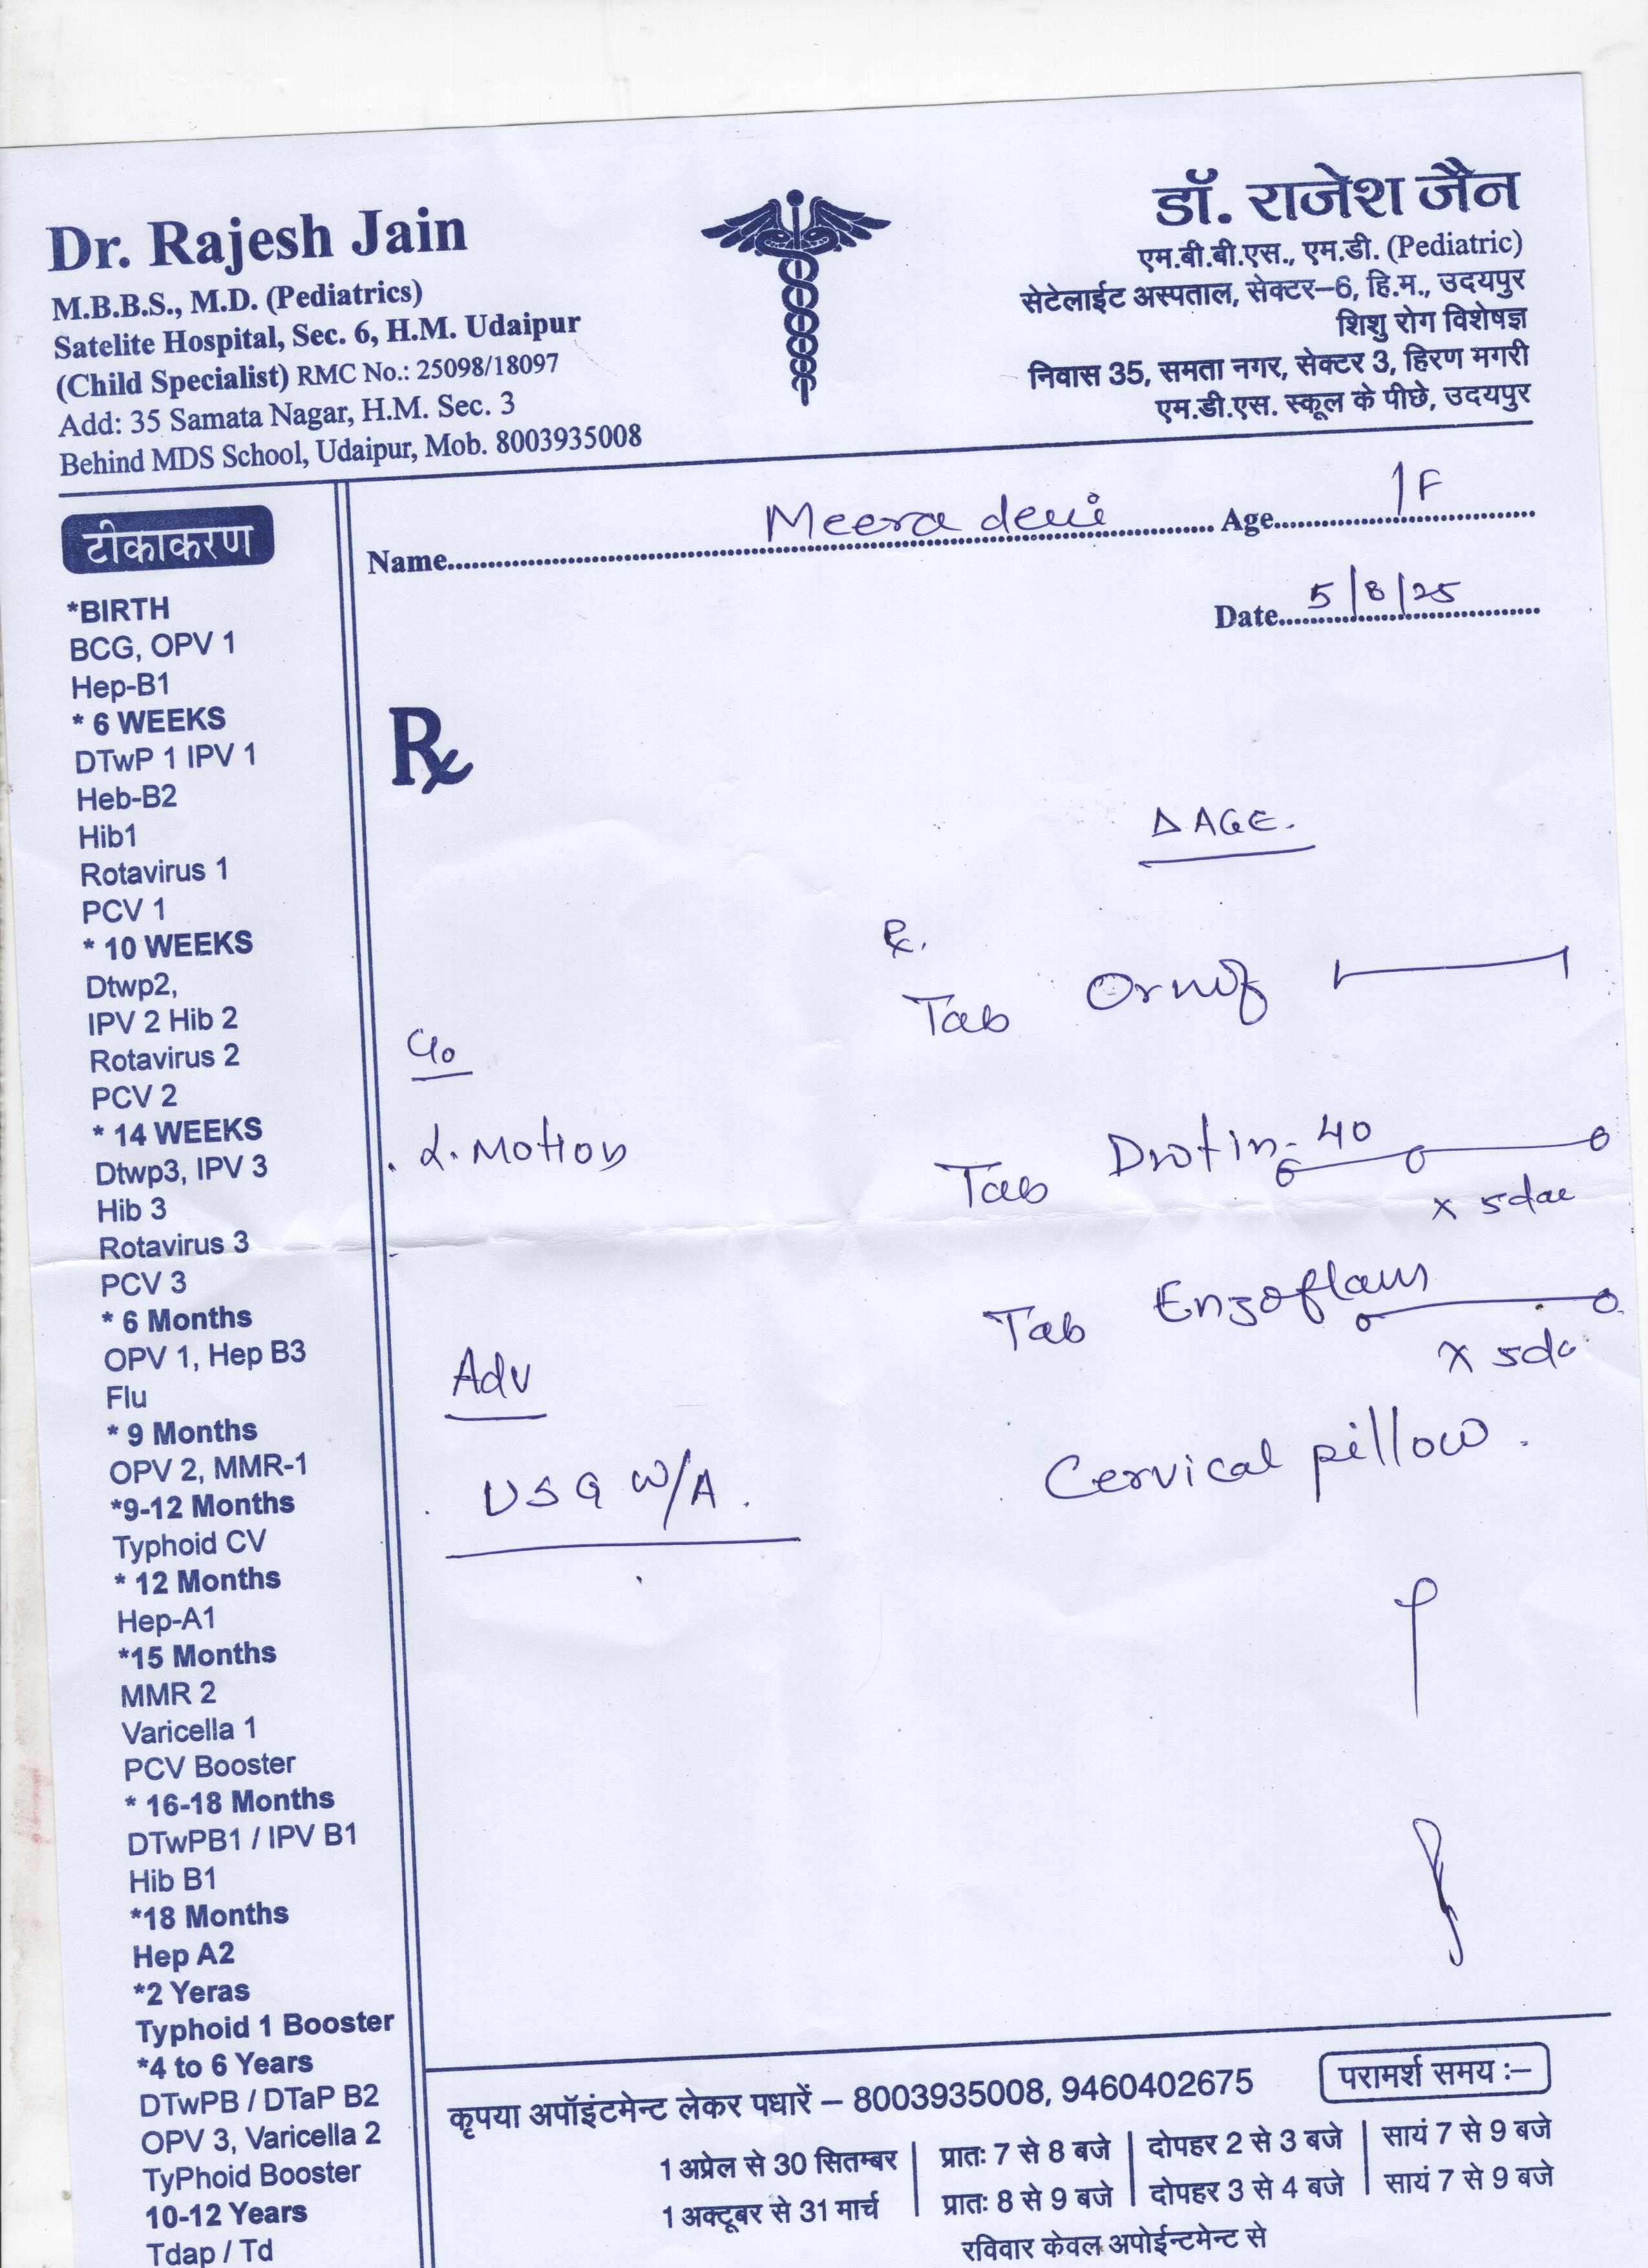 Dr. Rajesh Jain
M.B.B.S., M.D. (Pediatrics)
Satelite Hospital, Sec. 6, H.M. Udaipur
(Child Specialist) RMC No.: 25098/18097
Add: 35 Samata Nagar, H.M. Sec. 3
Behind MDS School, Udaipur, Mob. 8003935008
डॉ. राजेश जैन
एम.बी.बी.एस., एम.डी. (Pediatric)
सेटेलाईट अस्पताल, सेक्टर-6, हि.म., उदयपुर
शिशु रोग विशेषज्ञ
निवास 35, समता नगर, सेक्टर 3, हिरण मगरी
एम.डी.एस. स्कूल के पीछे, उदयपुर
Name Meera devi Age /F
Date 5/8/25
टीकाकरण
*BIRTH
BCG, OPV 1
Hep-B1
* 6 WEEKS
DTwP 1 IPV 1
Heb-B2
Hib1
Rotavirus 1
PCV 1
* 10 WEEKS
Dtwp2,
IPV 2 Hib 2
Rotavirus 2
PCV 2
* 14 WEEKS
Dtwp3, IPV 3
Hib 3
Rotavirus 3
PCV 3
* 6 Months
OPV 1, Hep B3
Flu
* 9 Months
OPV 2, MMR-1
*9-12 Months
Typhoid CV
* 12 Months
Hep-A1
*15 Months
MMR 2
Varicella 1
PCV Booster
* 16-18 Months
DTwPB1 / IPV B1
Hib B1
*18 Months
Hep A2
*2 Yeras
Typhoid 1 Booster
*4 to 6 Years
DTwPB / DTaP B2
OPV 3, Varicella 2
TyPhoid Booster
10-12 Years
Tdap / Td
Rx
C/o
L. Motion
Adv
USG W/A.
Δ AGE.
Rx.
Tab Ornof
Tab Drotin-40
x 5da
Tab Enzoflam
x 5da
Cervical pillow.
कृपया अपॉइंटमेन्ट लेकर पधारें – 8003935008, 9460402675
परामर्श समय :–
1 अप्रेल से 30 सितम्बर | प्रातः 7 से 8 बजे | दोपहर 2 से 3 बजे | सायं 7 से 9 बजे
1 अक्टूबर से 31 मार्च | प्रातः 8 से 9 बजे | दोपहर 3 से 4 बजे | सायं 7 से 9 बजे
रविवार केवल अपोईन्टमेन्ट से